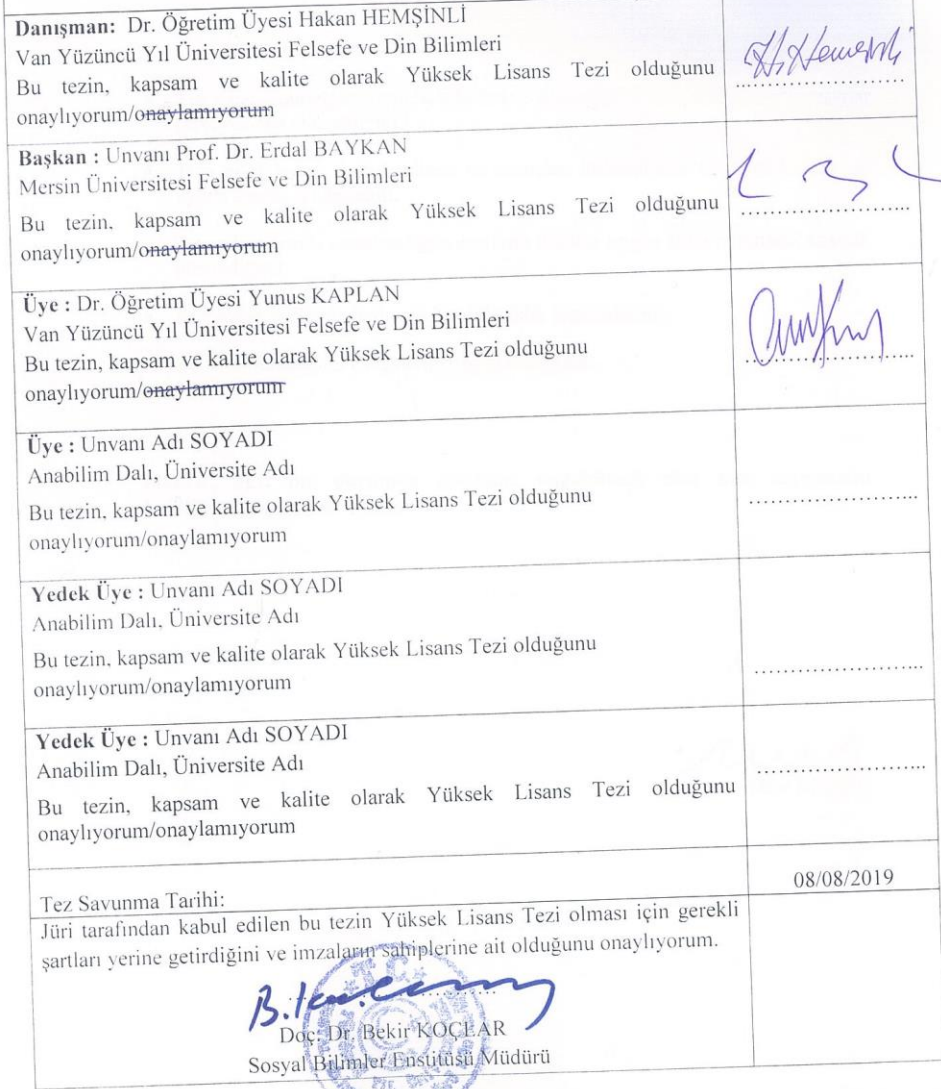 Danışman: Dr. Öğretim Üyesi Hakan HEMŞİNLİ
Van Yüzüncü Yıl Üniversitesi Felsefe ve Din Bilimleri
Bu tezin, kapsam ve kalite olarak Yüksek Lisans Tezi olduğunu
onaylıyorum/onaylamıyorum
H. Hemşinli
Başkan : Unvanı Prof. Dr. Erdal BAYKAN
Mersin Üniversitesi Felsefe ve Din Bilimleri
Bu tezin, kapsam ve kalite olarak Yüksek Lisans Tezi olduğunu
onaylıyorum/onaylamıyorum
Üye : Dr. Öğretim Üyesi Yunus KAPLAN
Van Yüzüncü Yıl Üniversitesi Felsefe ve Din Bilimleri
Bu tezin, kapsam ve kalite olarak Yüksek Lisans Tezi olduğunu
onaylıyorum/onaylamıyorum
Üye : Unvanı Adı SOYADI
Anabilim Dalı, Üniversite Adı
Bu tezin, kapsam ve kalite olarak Yüksek Lisans Tezi olduğunu
onaylıyorum/onaylamıyorum
Yedek Üye : Unvanı Adı SOYADI
Anabilim Dalı, Üniversite Adı
Bu tezin, kapsam ve kalite olarak Yüksek Lisans Tezi olduğunu
onaylıyorum/onaylamıyorum
Yedek Üye : Unvanı Adı SOYADI
Anabilim Dalı, Üniversite Adı
Bu tezin, kapsam ve kalite olarak Yüksek Lisans Tezi olduğunu
onaylıyorum/onaylamıyorum
Tez Savunma Tarihi: 08/08/2019
Jüri tarafından kabul edilen bu tezin Yüksek Lisans Tezi olması için gerekli
şartları yerine getirdiğini ve imzaların sahiplerine ait olduğunu onaylıyorum.
T.C.
Doç. Dr. Bekir KOÇLAR
Sosyal Bilimler Enstitüsü Müdürü